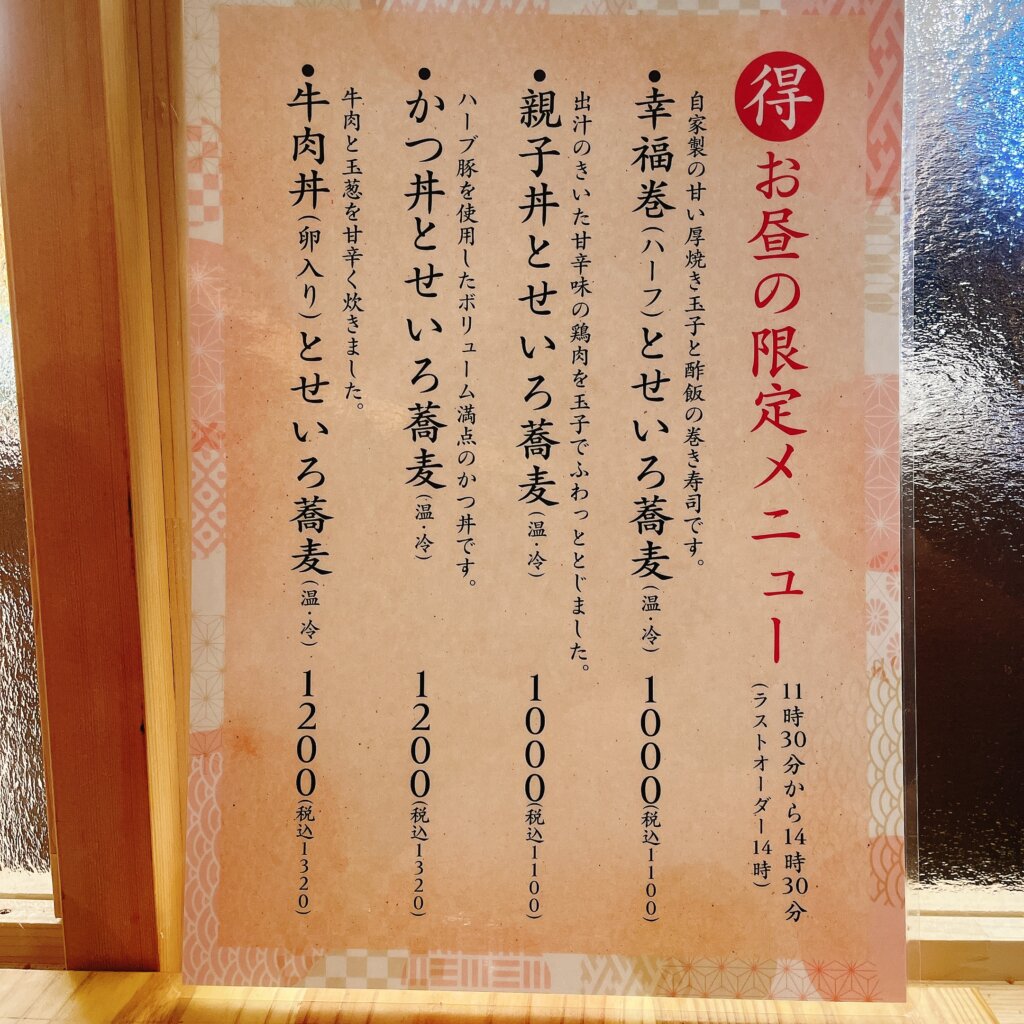 得 お昼の限定メニュー
11時30分から14時30分
(ラストオーダー14時)
自家製の甘い厚焼き玉子と酢飯の巻き寿司です。
●幸福巻(ハーフ)とせいろ蕎麦(温・冷) 1000(税込1100)
出汁のきいた甘辛味の鶏肉を玉子でふわっととじました。
●親子丼とせいろ蕎麦(温・冷) 1000(税込1100)
ハーブ豚を使用したボリューム満点のかつ丼です。
●かつ丼とせいろ蕎麦(温・冷) 1200(税込1320)
牛肉と玉葱を甘辛く炊きました。
●牛肉丼(卵入り)とせいろ蕎麦(温・冷) 1200(税込1320)